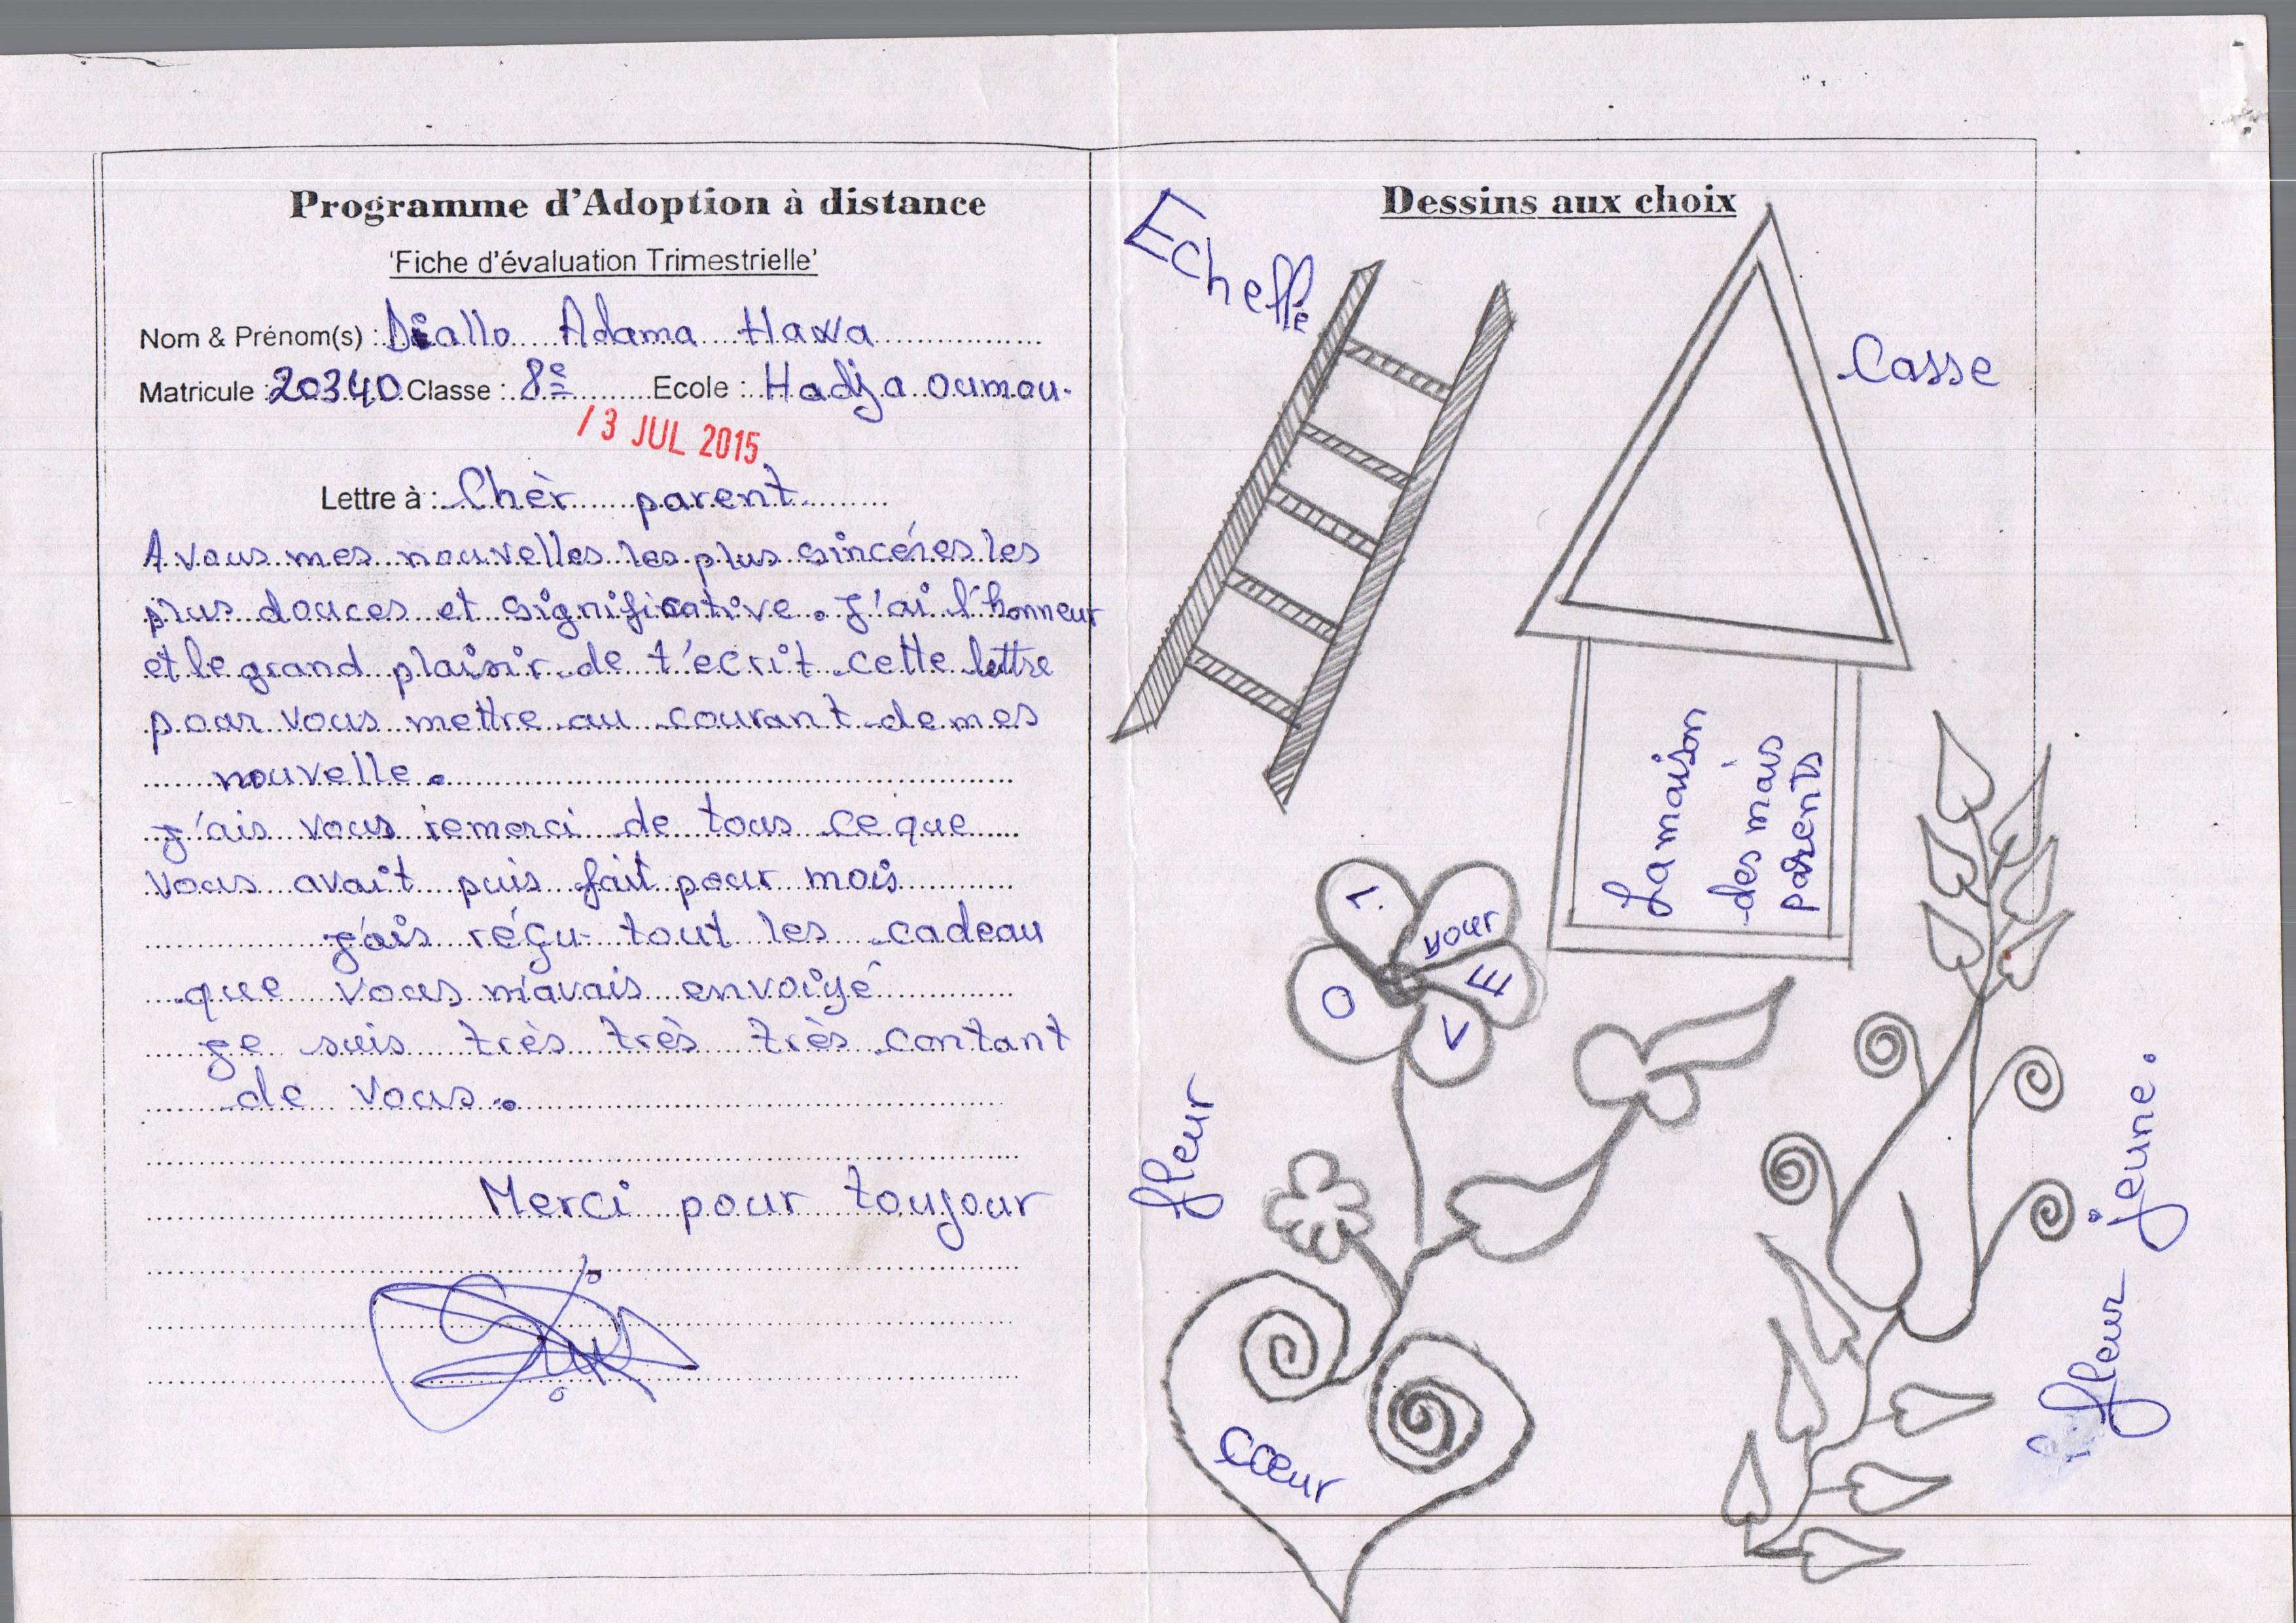 Programme d'Adoption à distance
'Fiche d'évaluation Trimestrielle'
Nom & Prénom(s) : Diallo Adama Hawa
Matricule : 20340 Classe : 8e Ecole : Hadja oumou.
13 JUL 2015
Lettre à : Chèr parent
A vous mes nouvelles les plus sincéres les
plus douces et significative. J'ai l'honneur
et le grand plaisir de t'ecrit cette lettre
pour vous mettre au courant de mes
nouvelle.
J'ais vous remerci de tous ce que
vous avait puis fait pour mois
J'ais réçu tout les cadeau
que vous m'avais envoiyé
je suis très très très contant
de vous.
Merci pour toujour
Dessins aux choix
Echelle
Casse
La maison
des mais
parents
L
your
O
E
V
fleur
cœur
fleur jeune.